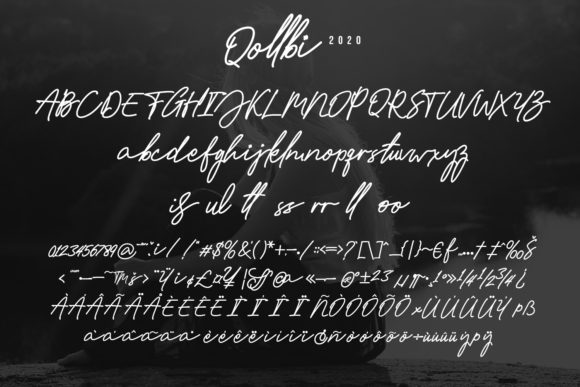 Qollbi 2020
ABCDEFGHIJKLMNOPQRSTUVWXYZ
abcdefghijklmnopqrstuvwxyz
is ul tt ss rr ll oo
0123456789@ / #$%&()*+.-./:<=>?[\]
¢£¤¥ ©«¬ ®°±23 µ¶·¸1º»¼½¾¿
ÀÁÂÃÄÈÉÊËÌÍÎÏÑÒÓÔÕÖ×ÙÚÛÜŸÞß
àáâãäåèéêëìíîïðñòóôõö÷ùúûüýþÿ